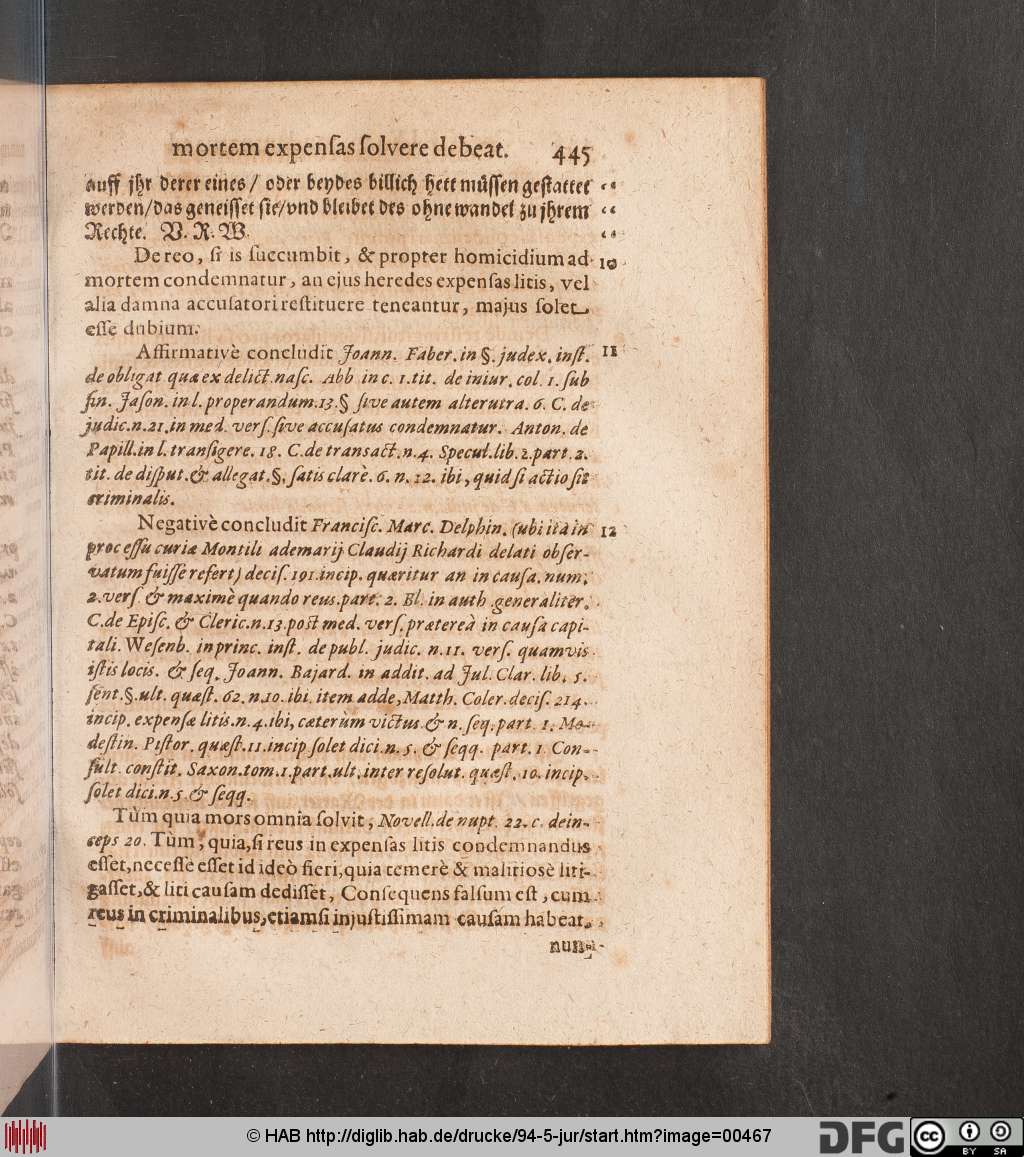 mortem expenſas ſolvere debeat. 445
auff jhr derer eines/ oder beydes billich hett müſſen geſtattet
werden/das geneiſſet ſie/vnd bleibet des ohne wandel zu jhrem
Rechte. V. R. W.
De reo, ſi is ſuccumbit, & propter homicidium ad 10
mortem condemnatur, an ejus heredes expenſas litis, vel
alia damna accuſatori reſtituere teneantur, majus ſolet
eſſe dubium.
Affirmativè concludit Joann. Faber. in §. judex. inſt. 11
de obligat quæ ex delict. naſc. Abb in c. 1. tit. de iniur. col. 1. ſub
fin. Jaſon. in l. properandum. 13. § ſive autem alterutra. 6. C. de
judic. n. 21. in med. verſ. ſive accuſatus condemnatur. Anton. de
Papill. in l. tranſigere. 18. C. de transact. n. 4. Specul. lib. 2. part. 2.
tit. de diſput. & allegat. §. ſatis clarè. 6. n. 12. ibi, quid ſi actio ſit
criminalis.
Negativè concludit Franciſc. Marc. Delphin. (ubi ita in 12
proceſſu curiæ Montili ademarij Claudij Richardi delati obſer-
vatum fuiſſe refert) deciſ. 191. incip. quæritur an in cauſa. num.
2. verſ. & maximè quando reus. part. 2. Bl. in auth. generaliter.
C. de Epiſc. & Cleric. n. 13. post med. verſ. præterea in cauſa capi-
tali. Weſenb. in princ. inſt. de publ. judic. n. 11. verſ. quamvis
iſtis locis. & ſeq. Joann. Bajard. in addit. ad Jul. Clar. lib. 5.
ſent. §. ult. quæſt. 62. n. 10. ibi, item adde, Matth. Coler. deciſ. 214.
incip. expenſæ litis. n. 4. ibi, cæterùm victus. & n. ſeq. part. 1. Mo-
deſtin. Piſtor. quæſt. 11. incip ſolet dici. n. 5. & ſeqq. part. 1. Con-
ſult. conſtit. Saxon. tom. 1. part. ult. inter reſolut. quæſt. 10. incip.
ſolet dici. n. 5. & ſeqq.
Tùm quia mors omnia ſolvit, Novell. de nupt. 22. c. dein-
ceps 20. Tùm, quia, ſi reus in expenſas litis condemnandus
eſſet, neceſſe eſſet id ideò fieri, quia temerè & malitiosè liti-
gaſſet, & liti cauſam dediſſet, Conſequens falſum eſt, cum
reus in criminalibus, etiamſi injuſtiſſimam cauſam habeat,
nun-
© HAB http://diglib.hab.de/drucke/94-5-jur/start.htm?image=00467
DFG
cc BY SA